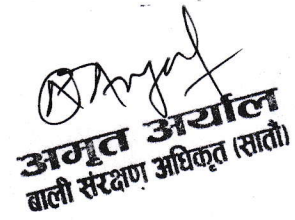 अमृत अर्याल
बाली संरक्षण अधिकृत (सातौं)